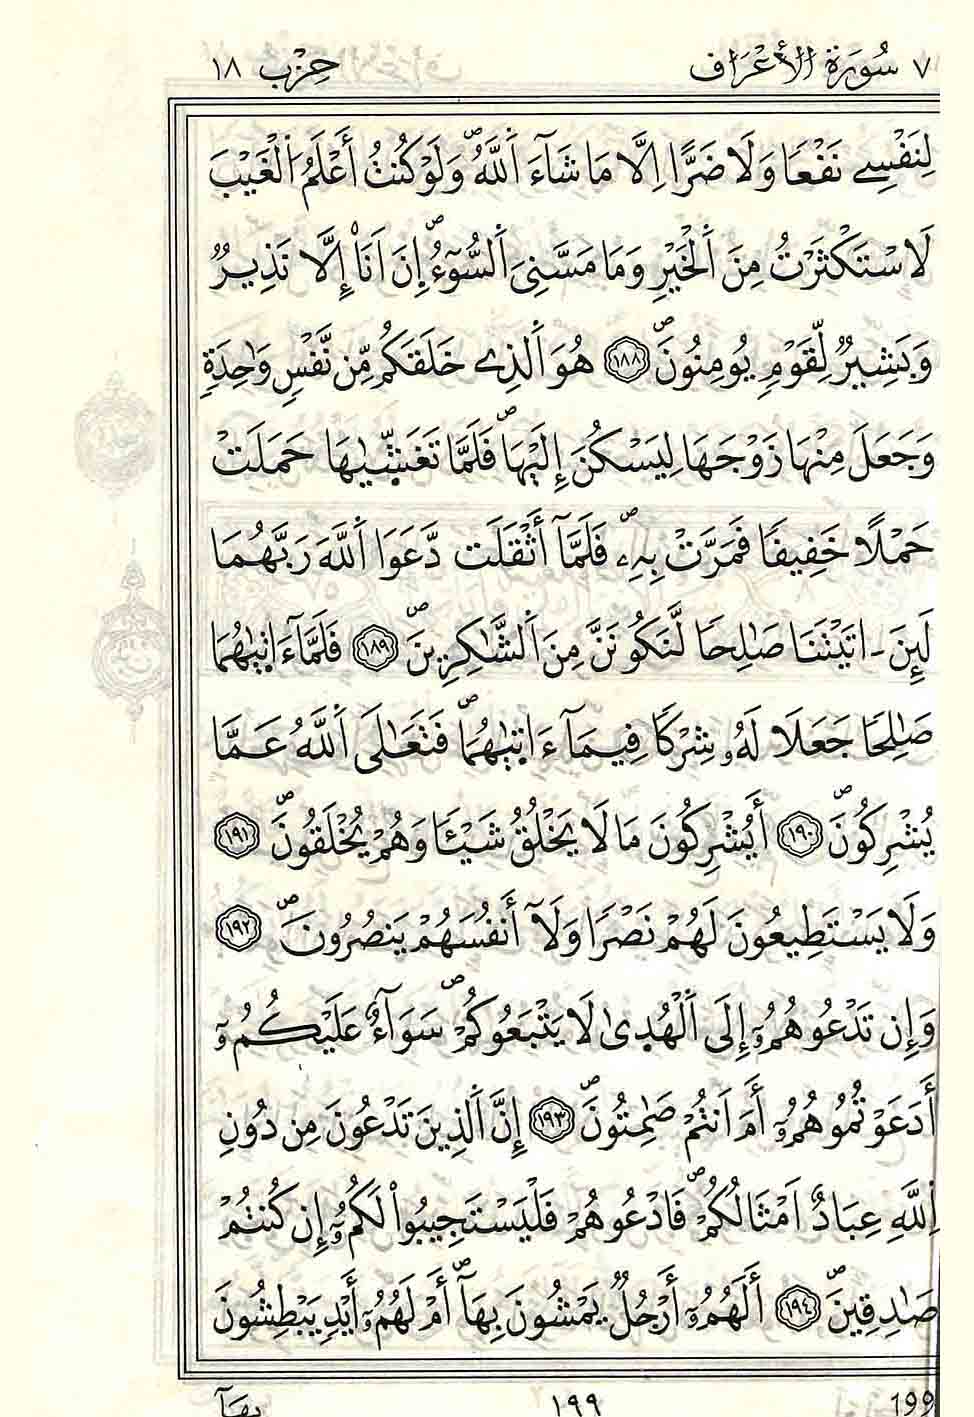 ٧ سُورَةُ الْأَعْرَافِ حِزْب ١٨
لِنَفْسِے نَفْعًا وَلَا ضَرًّا اِلَّا مَا شَآءَ اَ۬للَّهُۖ وَلَوْ كُنتُ أَعْلَمُ اُ۬لْغَيْبَ
لَاسْتَكْثَرْتُ مِنَ اَ۬لْخَيْرِ وَمَا مَسَّنِيَ اَ۬لسُّوٓءُۖ إِنَ اَنَآ إِلَّا نَذِيرٌ
وَبَشِيرٌ لِّقَوْمٍ يُومِنُونَۖ ١٨٨ هُوَ اَ۬لذِے خَلَقَكُم مِّن نَّفْسٍ وَٰحِدَةٍ
وَجَعَلَ مِنْهَا زَوْجَهَا لِيَسْكُنَ إِلَيْهَاۖ فَلَمَّا تَغَشّ۪ىٰهَا حَمَلَتْ
حَمْلًا خَفِيفًا فَمَرَّتْ بِهِۦۖ فَلَمَّآ أَثْقَلَت دَّعَوَا اَ۬للَّهَ رَبَّهُمَا
لَئِنَ ـ اتَيْتَنَا صَٰلِحًا لَّنَكُونَنَّ مِنَ اَ۬لشَّٰكِرِينَۖ ١٨٩ فَلَمَّآ ءَات۪ىٰهُمَا
صَٰلِحًا جَعَلَا لَهُۥ شِرْكًا فِيمَآ ءَات۪ىٰهُمَاۖ فَتَعَٰلَى اَ۬للَّهُ عَمَّا
يُشْرِكُونَۖ ١٩٠ أَيُشْرِكُونَ مَا لَا يَخْلُقُ شَيْـًٔا وَهُمْ يُخْلَقُونَۖ ١٩١
وَلَا يَسْتَطِيعُونَ لَهُمْ نَصْرًا وَلَآ أَنفُسَهُمْ يَنصُرُونَۖ ١٩٢
وَإِن تَدْعُوهُمُۥٓ إِلَى اَ۬لْهُد۪ىٰ لَا يَتْبَعُوكُمْۖ سَوَآءٌ عَلَيْكُمُۥٓ
أَدَعَوْتُمُوهُمُۥٓ أَمَ اَنتُمْ صَٰمِتُونَۖ ١٩٣ إِنَّ اَ۬لذِينَ تَدْعُونَ مِن دُونِ
اِ۬للَّهِ عِبَادٌ اَمْثَالُكُمْۖ فَادْعُوهُمْ فَلْيَسْتَجِيبُواْ لَكُمُۥٓ إِن كُنتُمْ
صَٰدِقِينَۖ ١٩٤ أَلَهُمُۥٓ أَرْجُلٌ يَمْشُونَ بِهَآۖ أَمْ لَهُمُۥٓ أَيْدٍ يَبْطِشُونَ
199 ١٩٩ بِهَآ